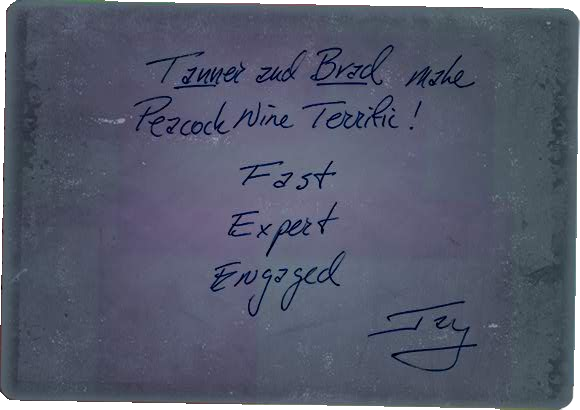 Tanner and Brad make
Peacock Nine Terrific!
Fast
Expert
Engaged
Izy